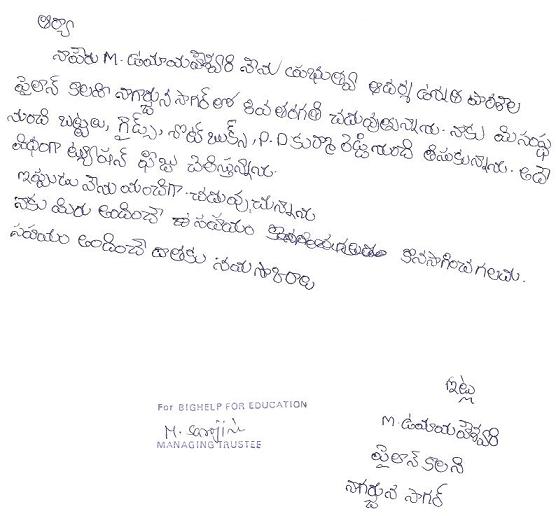 ఆర్యా
నాపేరు M. ఉమామహేశ్వరి నేను ప్రభుత్వ ఆదర్శ ఉన్నత పాఠశాల
పైలాన్ కాలని నాగార్జున సాగర్ లో 8వ తరగతి చదువుతున్నాను. నాకు మీ సంస్థ
నుంచి బట్టలు, గైడ్స్, నోట్ బుక్స్, P.D కుర్మా రెడ్డి నుంచి తీసుకున్నాను. అదే
విధంగా ట్యూషన్ ఫీజు చెలిస్తున్నారు.
ఇప్పుడు నేను మంచిగా చదువుచున్నాను
నాకు మీరు అందించే ఈ సహాయం కొనసాగించగలరు.
సహయం అందించే దాతకు నమస్కారాలు
ఇట్లు
M. ఉమామహేశ్వరి
పైలాన్ కాలని
నాగార్జున సాగర్
For BIGHELP FOR EDUCATION
M. Sarojini
MANAGING TRUSTEE